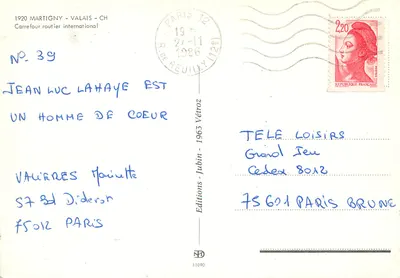 1920 MARTIGNY - VALAIS - CH
Carrefour routier international
N°. 39
JEAN LUC LAHAYE EST
UN HOMME DE COEUR
VALIÈRES
57 Bd Diderot
75012 PARIS
Editions - Jubin - 1963 Vétroz
PARIS 12
1986
R. de REUILLY (12e)
2,20
TELE LOISIRS
Grand Jeu
Cedex 8012
75601 PARIS BRUNE